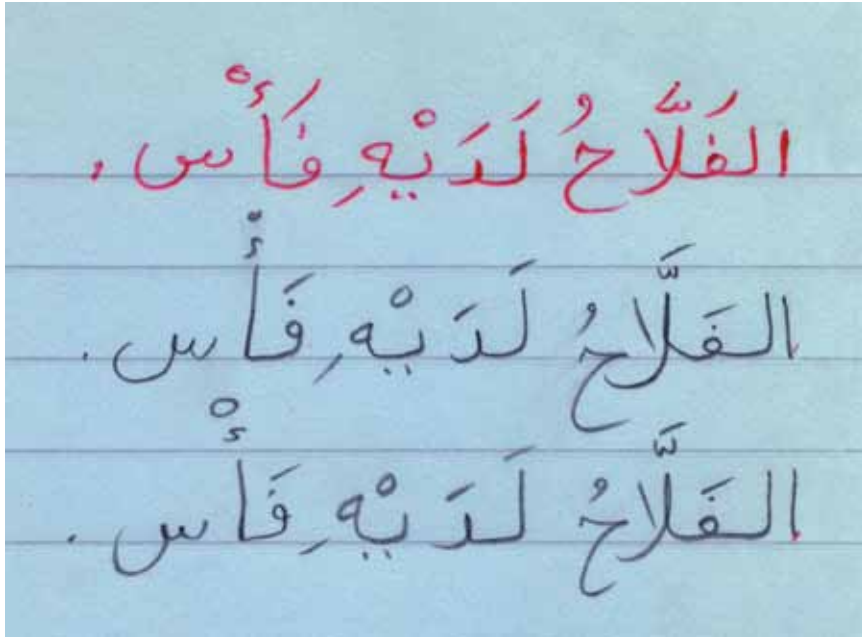 الفَلَّاحُ لَدَيْهِ فَأْس .
الفَلَّاحُ لَدَيْهِ فَأْس .
الفَلَّاحُ لَدَيْهِ فَأْس .